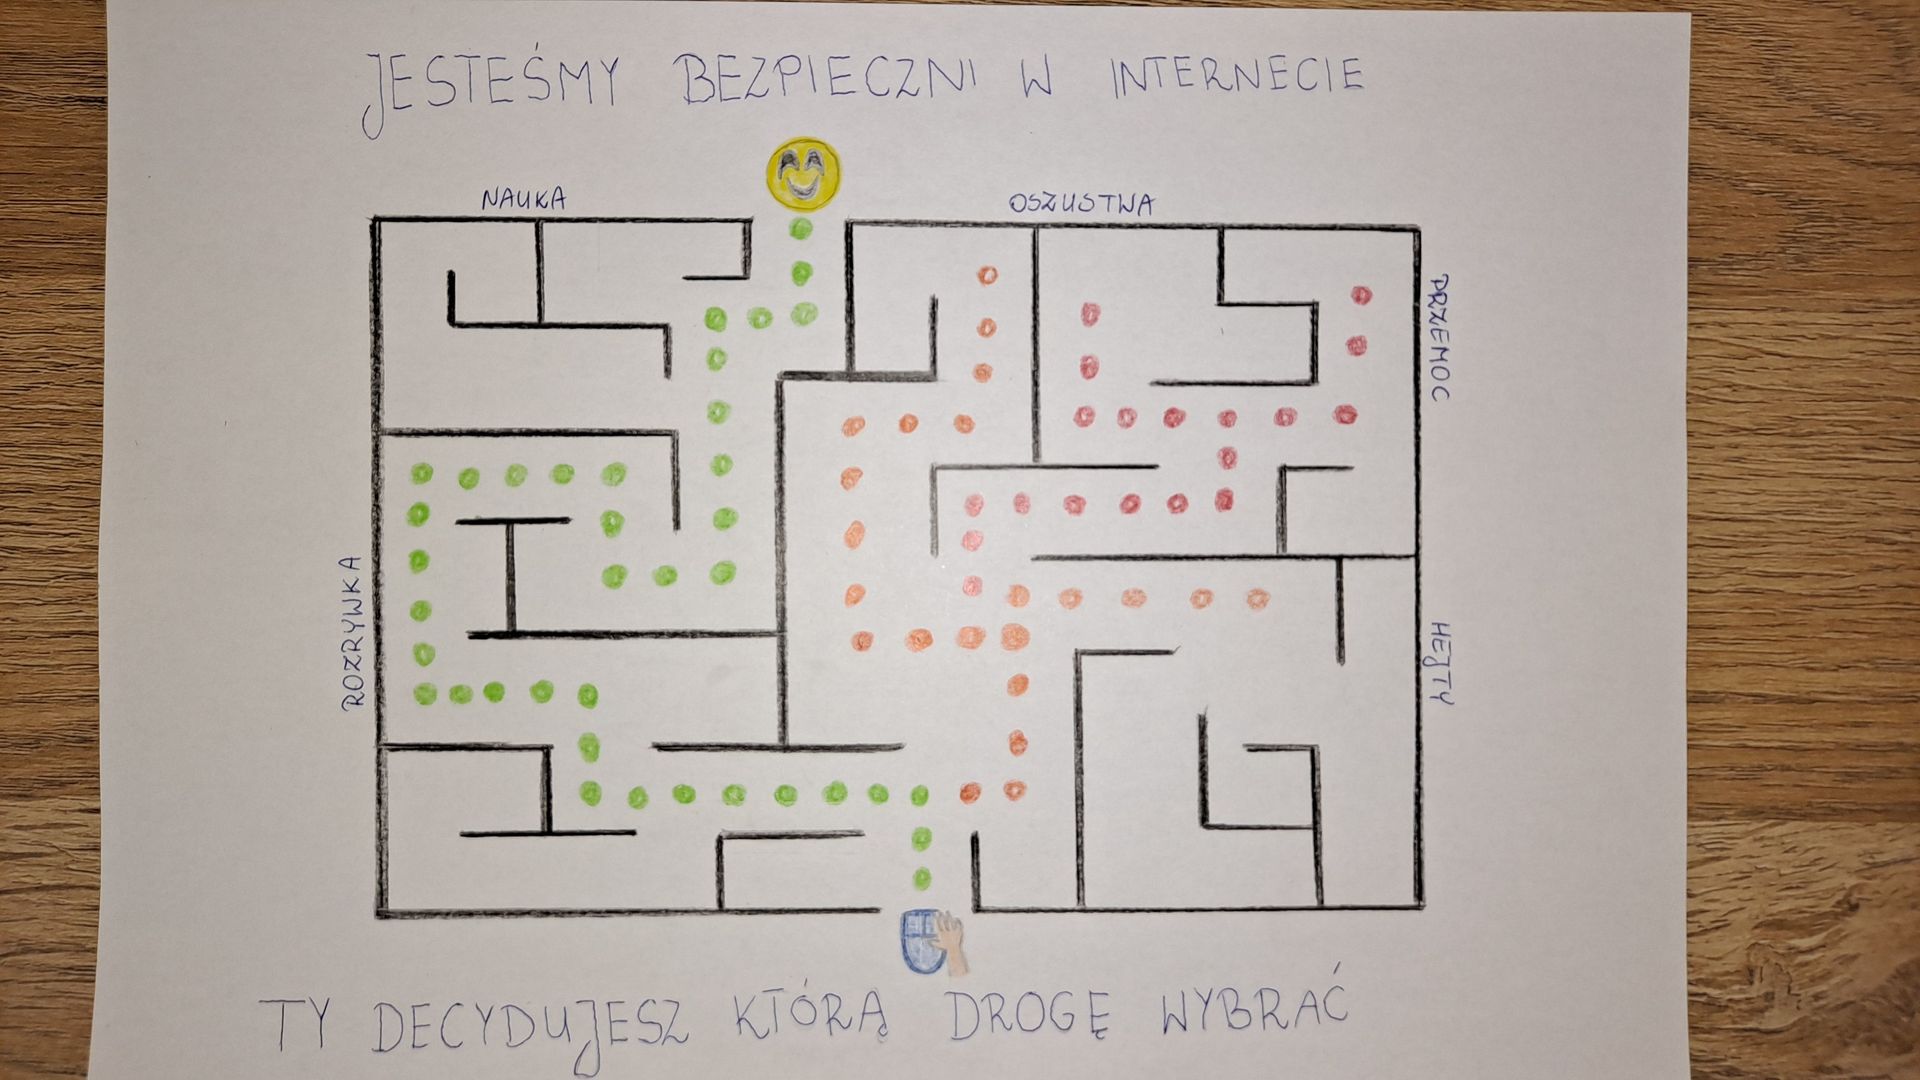 JESTEŚMY BEZPIECZNI W INTERNECIE
NAUKA
OSZUSTWA
PRZEMOC
ROZRYWKA
HEJTY
TY DECYDUJESZ KTÓRĄ DROGĘ WYBRAĆ